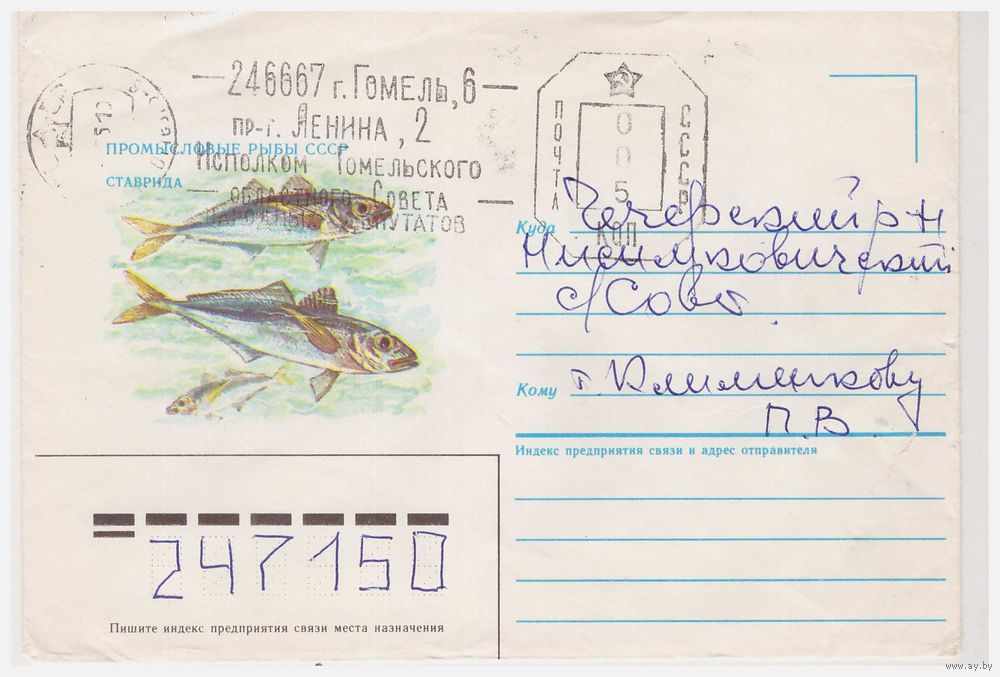 246667 г. Гомель, 6
пр-т. Ленина, 2
Исполком Гомельского
областного Совета
народных депутатов
ПОЧТА
СССР
005
КОП
ПРОМЫСЛОВЫЕ РЫБЫ СССР
СТАВРИДА
Куда Чечерский р-н
Нисимковический
с/Совет.
Кому т. Клименкову
П. В.
Индекс предприятия связи и адрес отправителя
247150
Пишите индекс предприятия связи места назначения
www.ay.by